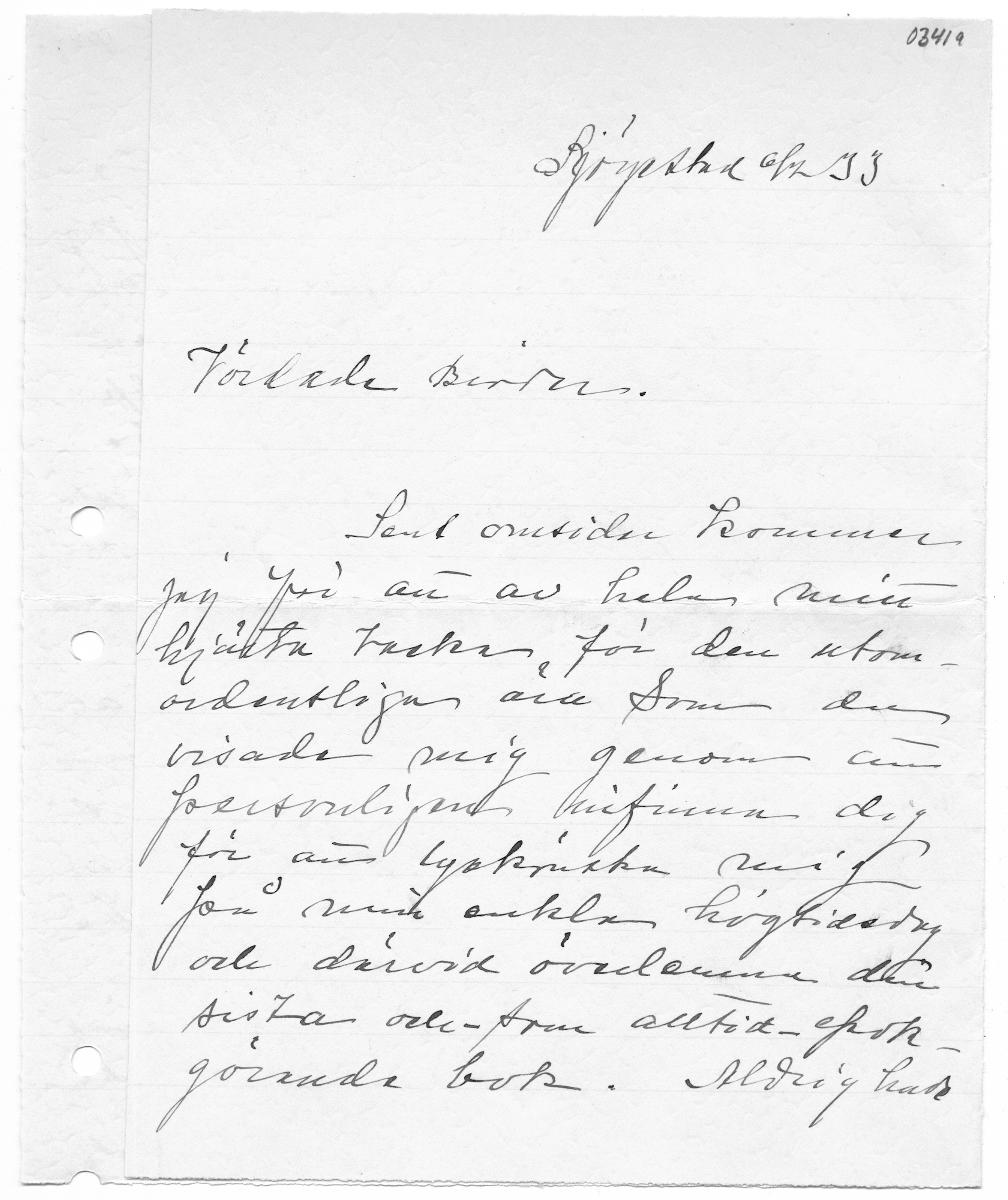 0341a
Sjögestad 6/12 33
Vördade Broder.
Sent omsider kommer
jag för att av hela mitt
hjärta tacka för den utom-
ordentliga ära som du
visade mig genom att
personligen infinna dig
för att lyckönska mig
på min enkla högtidsdag
och därvid överlämna din
sista och - som alltid - epok-
görande bok. Aldrig hade